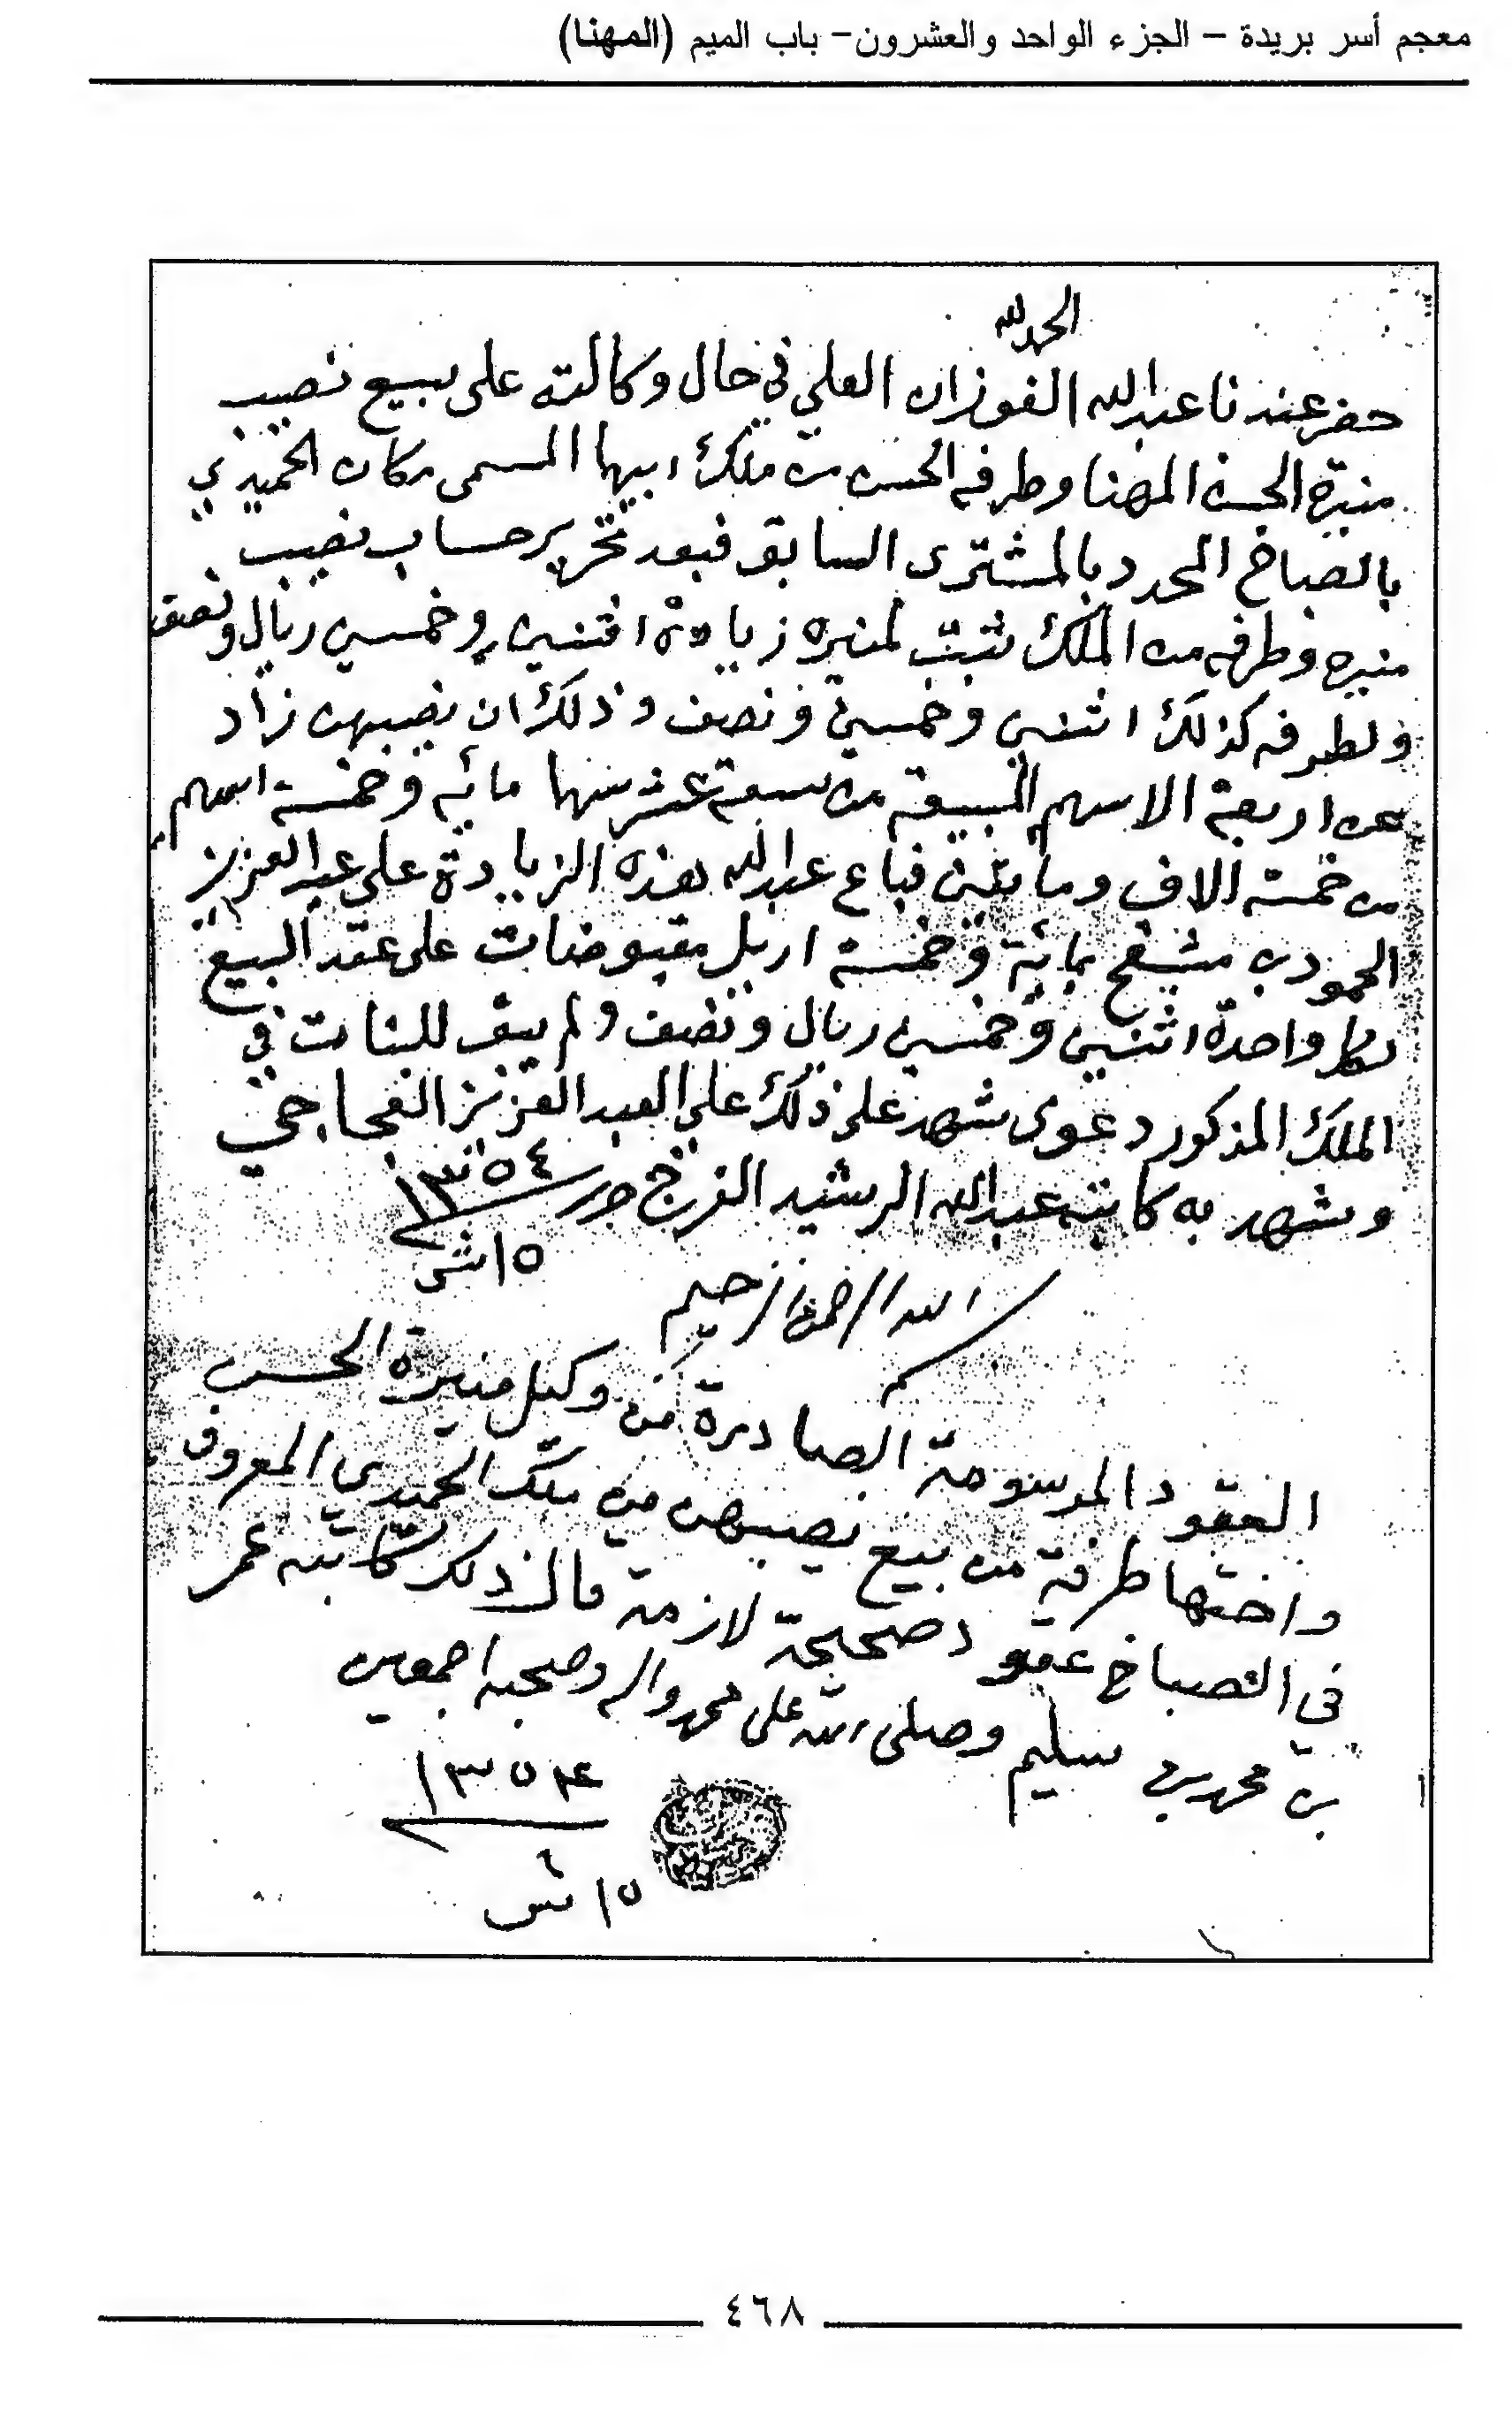 معجم أسر بريدة – الجزء الواحد والعشرون– باب الميم (المهنا)
الحمد لله
حضر عندنا عبدالله الفوزان العلي في حال وكالته على بييع نصيب
منيرة الحسن المهنا وطرفه الحسن من ملك ابيها المسمى مكان الحميدي
بالصباخ المحدد بالمشترى السابق فبعد تحرير حساب نصيب
منيره وطرفه من الملك ثبت لمنيره زيادة اثنين وخمسين ريال ونصف
ولطرفه كذلك اثنين وخمسين ونصف وذلك ان نصيبهن زاد
عن اربعة الاسهم المبيعة من سبعة عشر سهما مائه وخمسة اسهم
من خمسة الاف ومايتين فباع عبدالله هذه الزيادة على عبد العزيز
الحمود بن مشيقح بمائة وخمسة اريل مقبوضات على عقد البيع
لكل واحدة اثنين وخمسين ريال ونصف ولم يبق للبنات في
الملك المذكور دعوى شهد على ذلك علي العبد العزيز العجاجي
وشهد به كاتبه عبدالله الرشيد الفرج حرر ١٣٥٤
١٥ ش
بسم الله الرحمن الرحيم
العقود المرسومة الصادرة من وكيل منيرة الحسن
واختها طرفة من بيع نصيبهن من ملك الحميدي المعروف
في الصباخ عقود صحيحة لازمة قال ذلك كاتبه عمر
بن محمد بن سليم وصلى الله على محمد واله وصحبه اجمعين
١٣٥٤
١٥ ش
٤٦٨